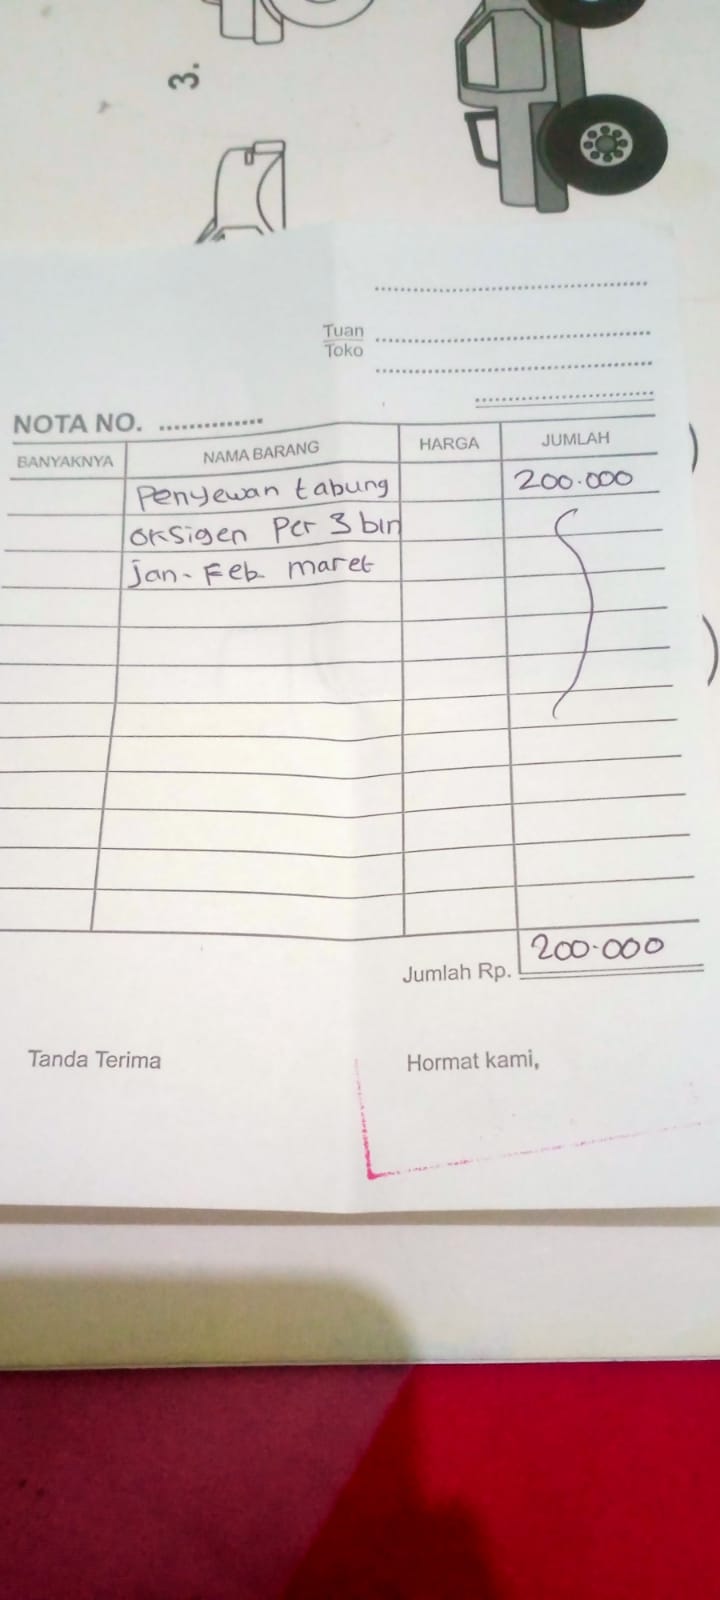 3.
Tuan
Toko
NOTA NO.
BANYAKNYA NAMA BARANG HARGA JUMLAH
Penyewan tabung 200.000
oksigen Per 3 bln
jan - Feb maret
Jumlah Rp. 200.000
Tanda Terima Hormat kami,